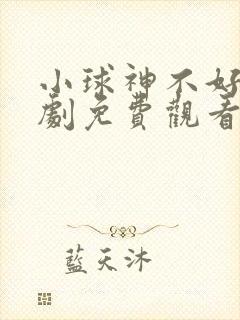 小球神不好
劇免費觀看
藍天沐